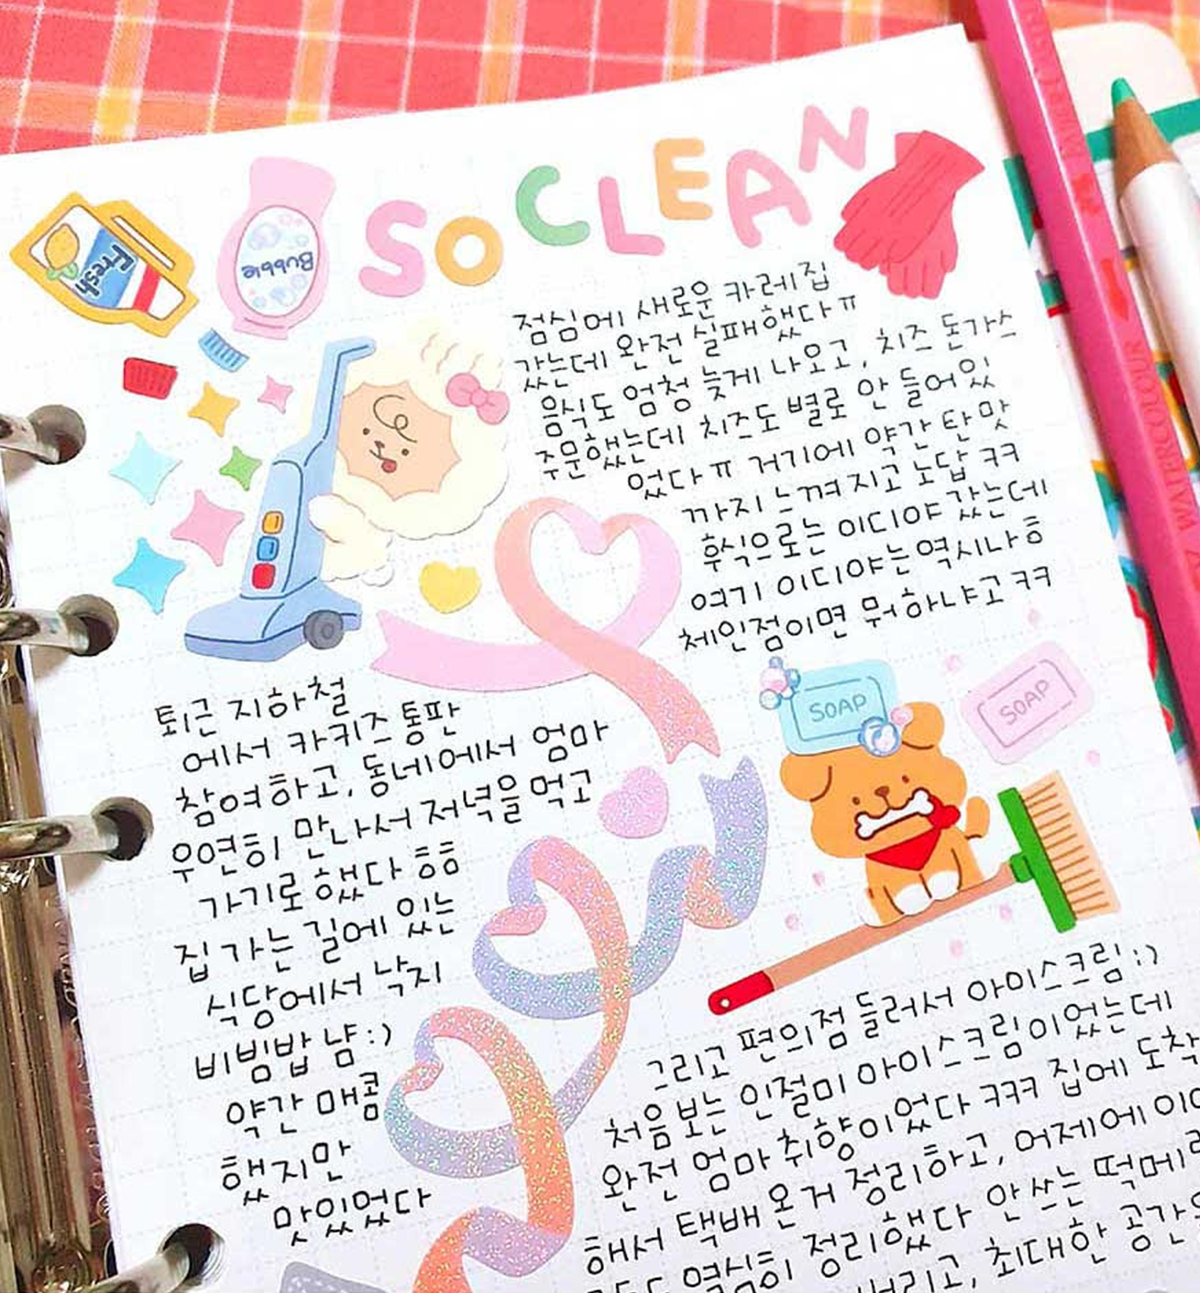 SO CLEAN
Fresh
Bubble
점심에 새로운 카레집
갔는데 완전 실패했다ㅠ
음식도 엄청 늦게 나오고, 치즈 돈가스
주문했는데 치즈도 별로 안 들어있
었다ㅠ 거기에 약간 탄 맛
까지 느껴지고 노답 ㅋㅋ
후식으로는 이디야 갔는데
여기 이디야는 역시나ㅎ
체인점이면 뭐하냐고 ㅋㅋ
SOAP
SOAP
퇴근 지하철
에서 카키즈 통판
참여하고, 동네에서 엄마
우연히 만나서 저녁을 먹고
가기로 했다 ㅎㅎ
집 가는 길에 있는
식당에서 낙지
비빔밥 냠:)
약간 매콤
했지만
맛있었다
그리고 편의점 들러서 아이스크림:)
처음 보는 인절미 아이스크림이었는데
완전 엄마 취향이었다 ㅋㅋㅋ 집에 도착
해서 택배 온 거 정리하고, 어제에 이어
열심히 정리했다 안 쓰는 떡메
버리고, 최대한 공간
WATERCOLOUR